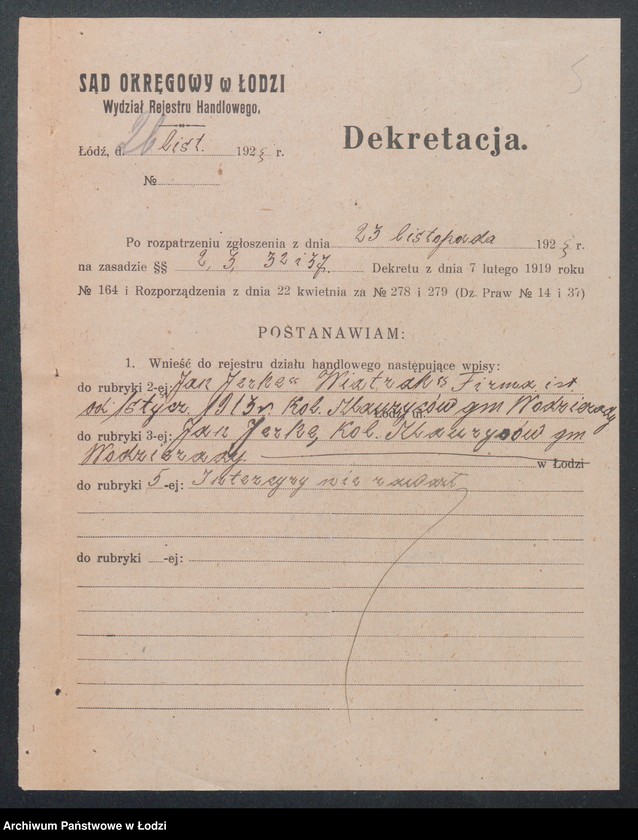 SĄD OKRĘGOWY w ŁODZI
Wydział Rejestru Handlowego,
Łódź, d. 26 list. 192 r.
№
Dekretacja.
Po rozpatrzeniu zgłoszenia z dnia 23 listopada 192 r.
na zasadzie §§ 2, 3, 32 i 37. Dekretu z dnia 7 lutego 1919 roku
№ 164 i Rozporządzenia z dnia 22 kwietnia za № 278 i 279 (Dz. Praw № 14 i 37)
POSTANAWIAM:
1. Wnieść do rejestru działu handlowego następujące wpisy:
do rubryki 2-ej: „Jan Jerke" Wiatrak" Firma ist.
od 1 stycz. 1913 r. Kol. gm Wodzierady
do rubryki 3-ej: Jan Jerke, Kol. gm
Wodzierady w Łodzi
do rubryki 5-ej: Intercyzy nie zawarł
do rubryki -ej:
Archiwum Państwowe w Łodzi